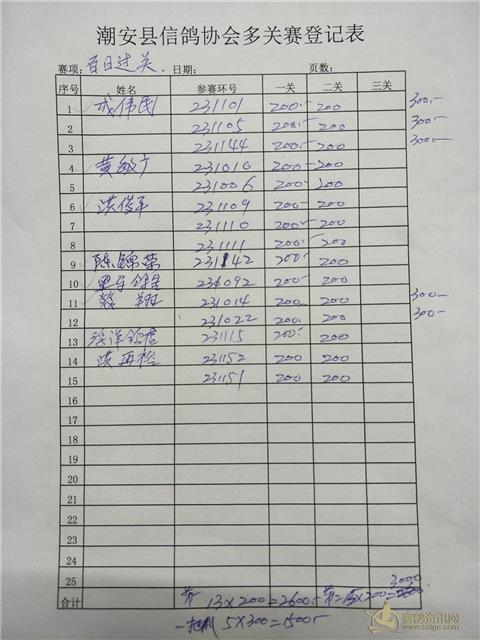 潮安县信鸽协会多关赛登记表
赛项: 百日过关 日期: 页数:
序号 姓名 参赛环号 一关 二关 三关
1 成伟民 231101 200.- 200 300.-
2 231105 200.- 200 300.-
3 231144 200.- 200 300.-
4 黄敏广 231010 200.- 200
5 231006 200.- 200
6 洪俊平 231109 200.- 200
7 231110 200.- 200
8 231111 200.- 200
9 陈锦荣 231142 200.- 200
10 236092 200.- 200
11 231014 200.- 200 300.-
12 231022 200.- 200 300.-
13 231115 200.- 200
14 洪再检 231152 200 200
15 231151 200 200
16
17
18
19
20
21
22
23
24
25 3000
合计 第一 13×200=2600.- 第二 15×200=2600
5×300=1500.-
赛鸽资讯网
www.saige.com